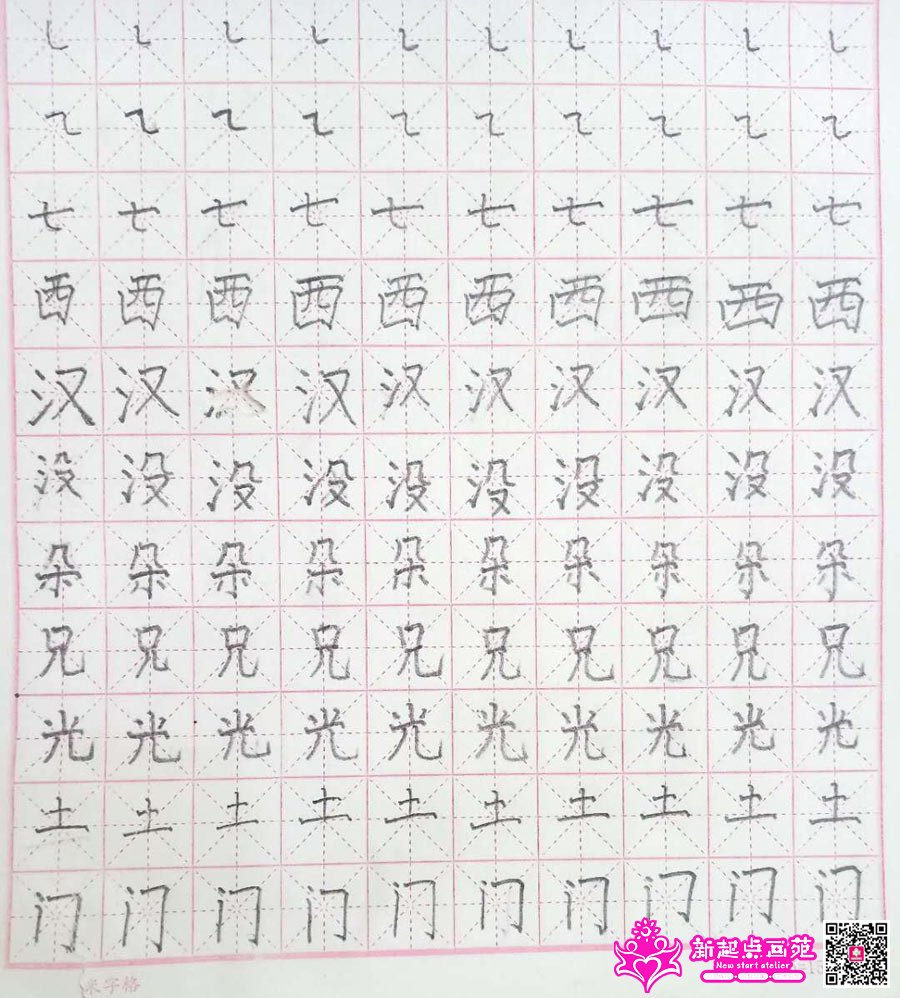 七七七七七七七七七七
西西西西西西西西西西
汉汉汉汉汉汉汉汉汉汉
没没没没没没没没没没
朵朵朵朵朵朵朵朵朵朵
兄兄兄兄兄兄兄兄兄兄
光光光光光光光光光光
土土土土土土土土土土
门门门门门门门门门门
新起点画苑
New start atelier
米字格